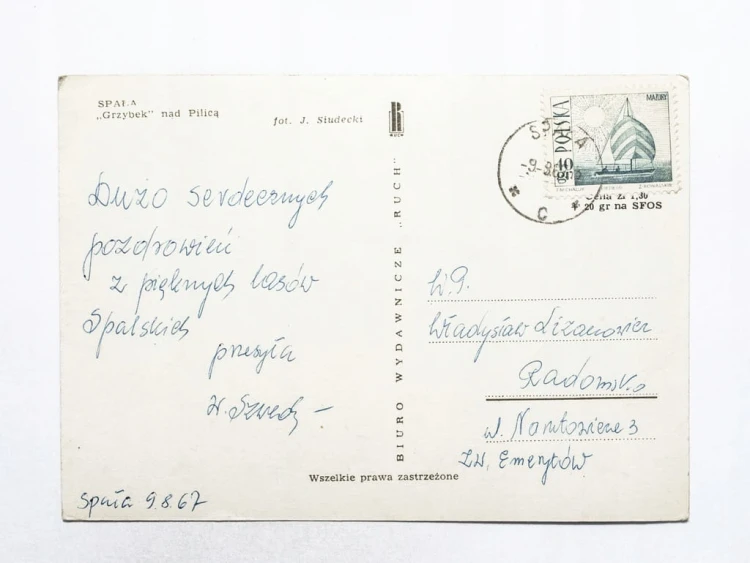 SPAŁA
„Grzybek" nad Pilicą
fot. J. Siudecki
RUCH
Dużo serdecznych
pozdrowień
z pięknych lasów
Spalskich
przesyła
Spała 9.8.67
BIURO WYDAWNICZE „RUCH"
Wszelkie prawa zastrzeżone
POLSKA
MAZURY
40 gr
SPAŁA
C
Cena zł 1,30
20 gr na SFOS
W.P.
Władysław
Radomsko
ul. Narutowicza 3
Zw. Emerytów